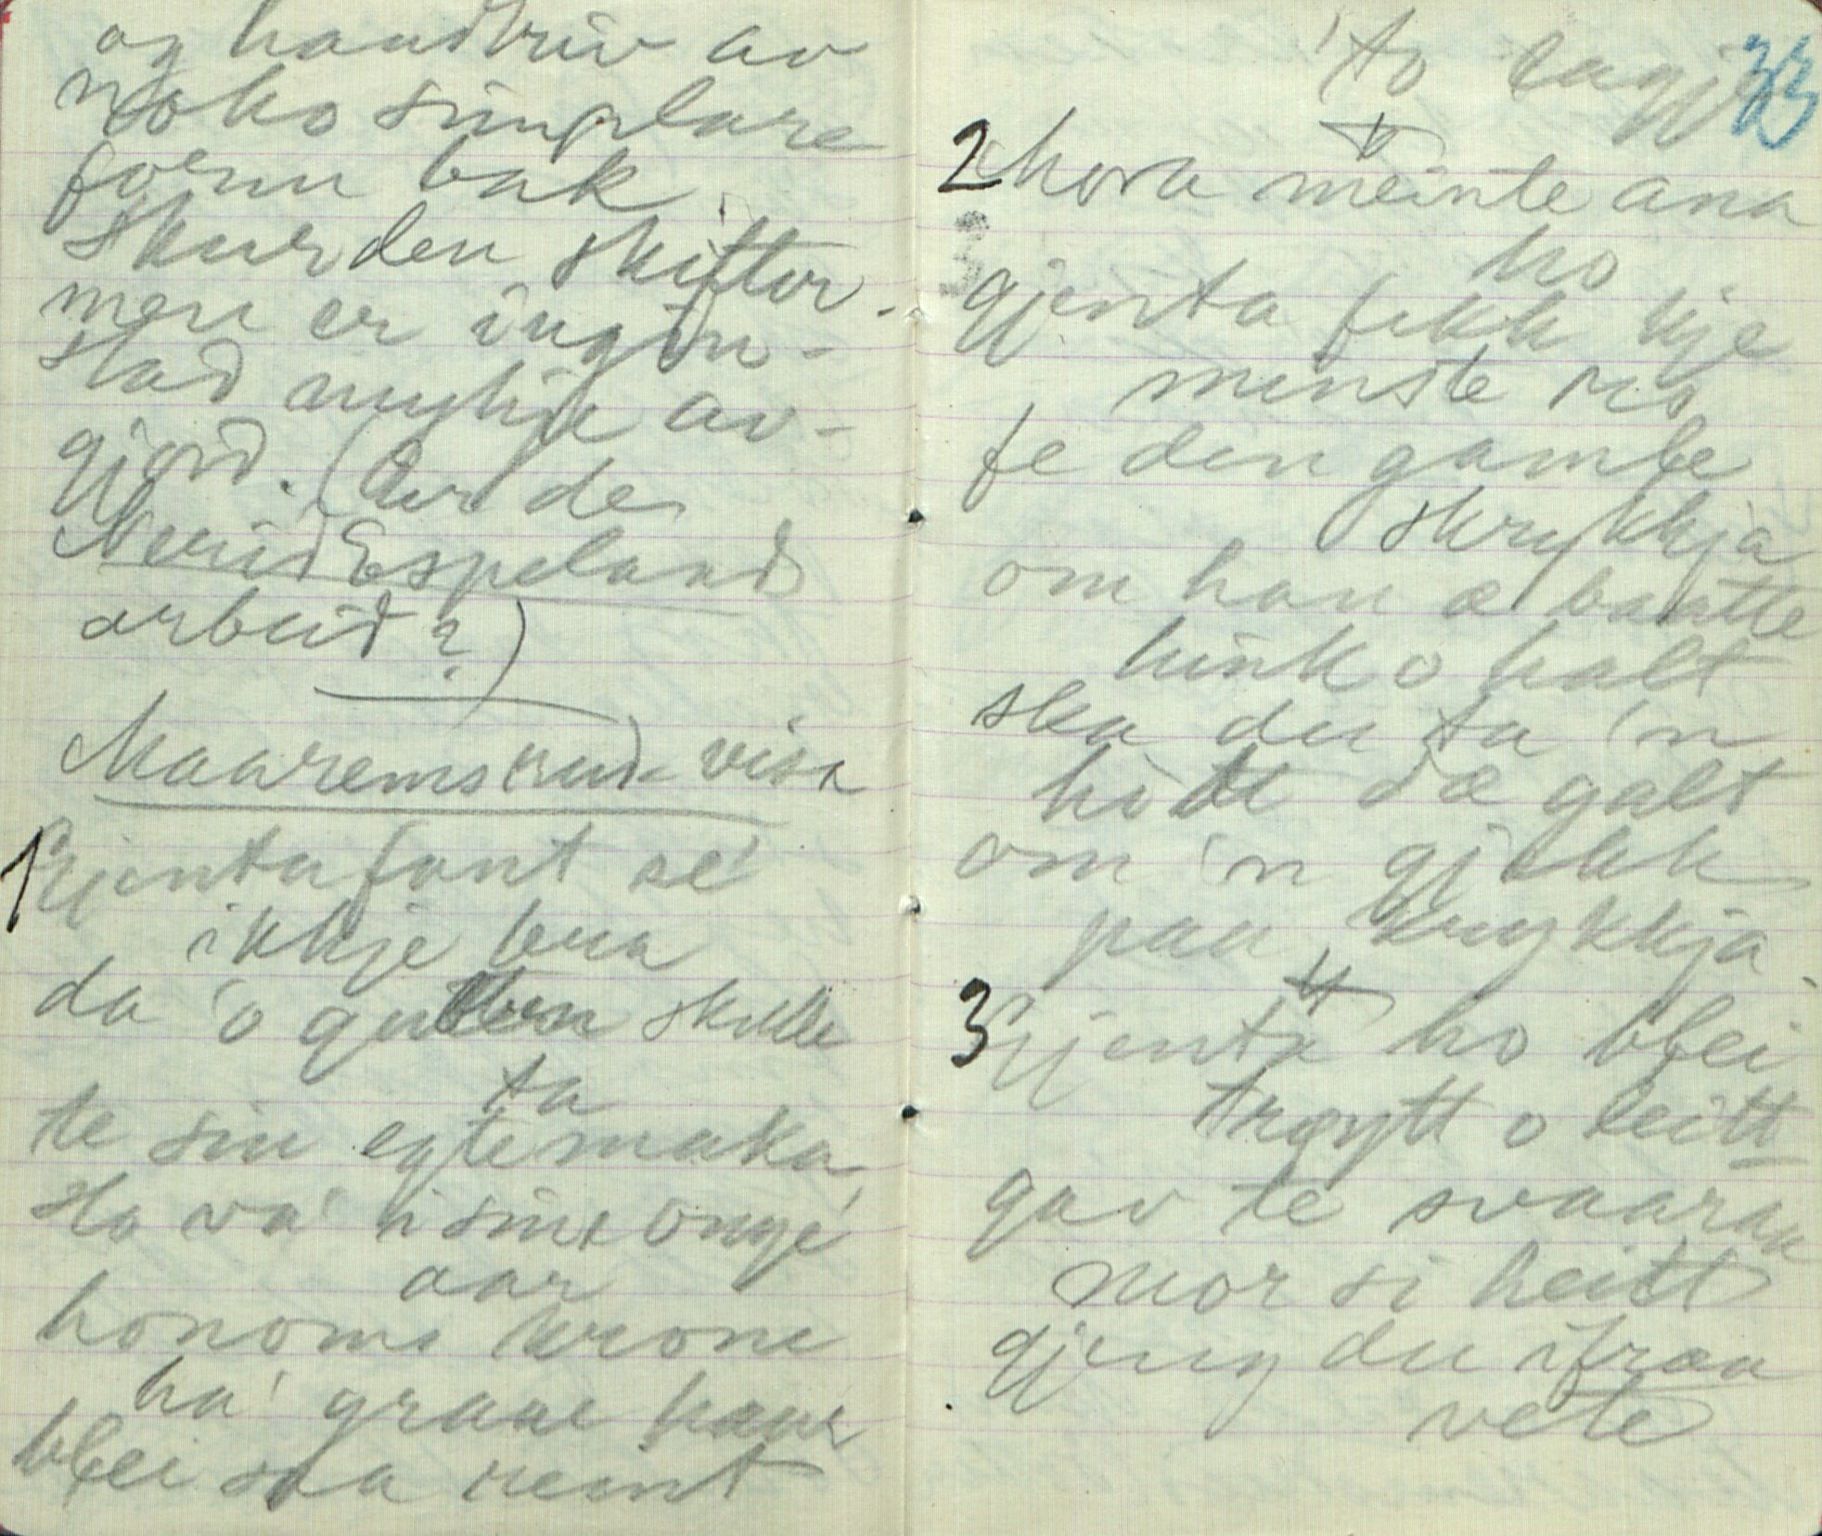 og handkriv av
noko simplare
form bak.
Skurden skiftor.
men er ingin-
stad mykje av-
gjord. (Er de
Nerid Espelands
arbeid?)
Maaremsrud-visa
1 Gjenta font se
ikkje bua
da 'o guten skulle
ta
te sin egtemaka,
Ho va' i sine onge
aar
honoms krone
ha' graae haar
blei saa reint
'to lagji
33
2 Mora meinte ana
gjenta ho
fekk kje
minste ris
fe din gamle
skrukkja
om han æ baatte
hink o halt
ska du ta 'n
hött dæ galt
om 'n gjekk
paa krykkja.
3 Gjenta ho blei
trøytt o leitt
gav te svaaran
mor si heitt
gjeng du ifraa
vete